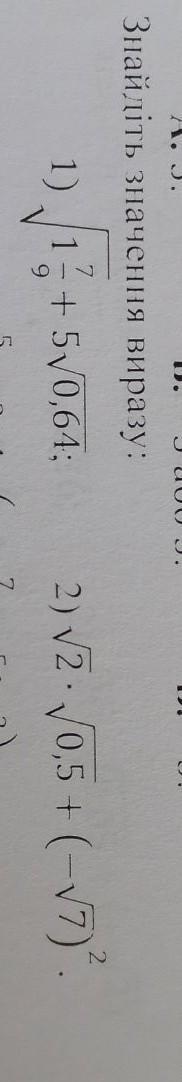 Знайдіть значення виразу:
1) √(1 7/9) + 5√0,64; 2) √2 · √0,5 + (−√7)².